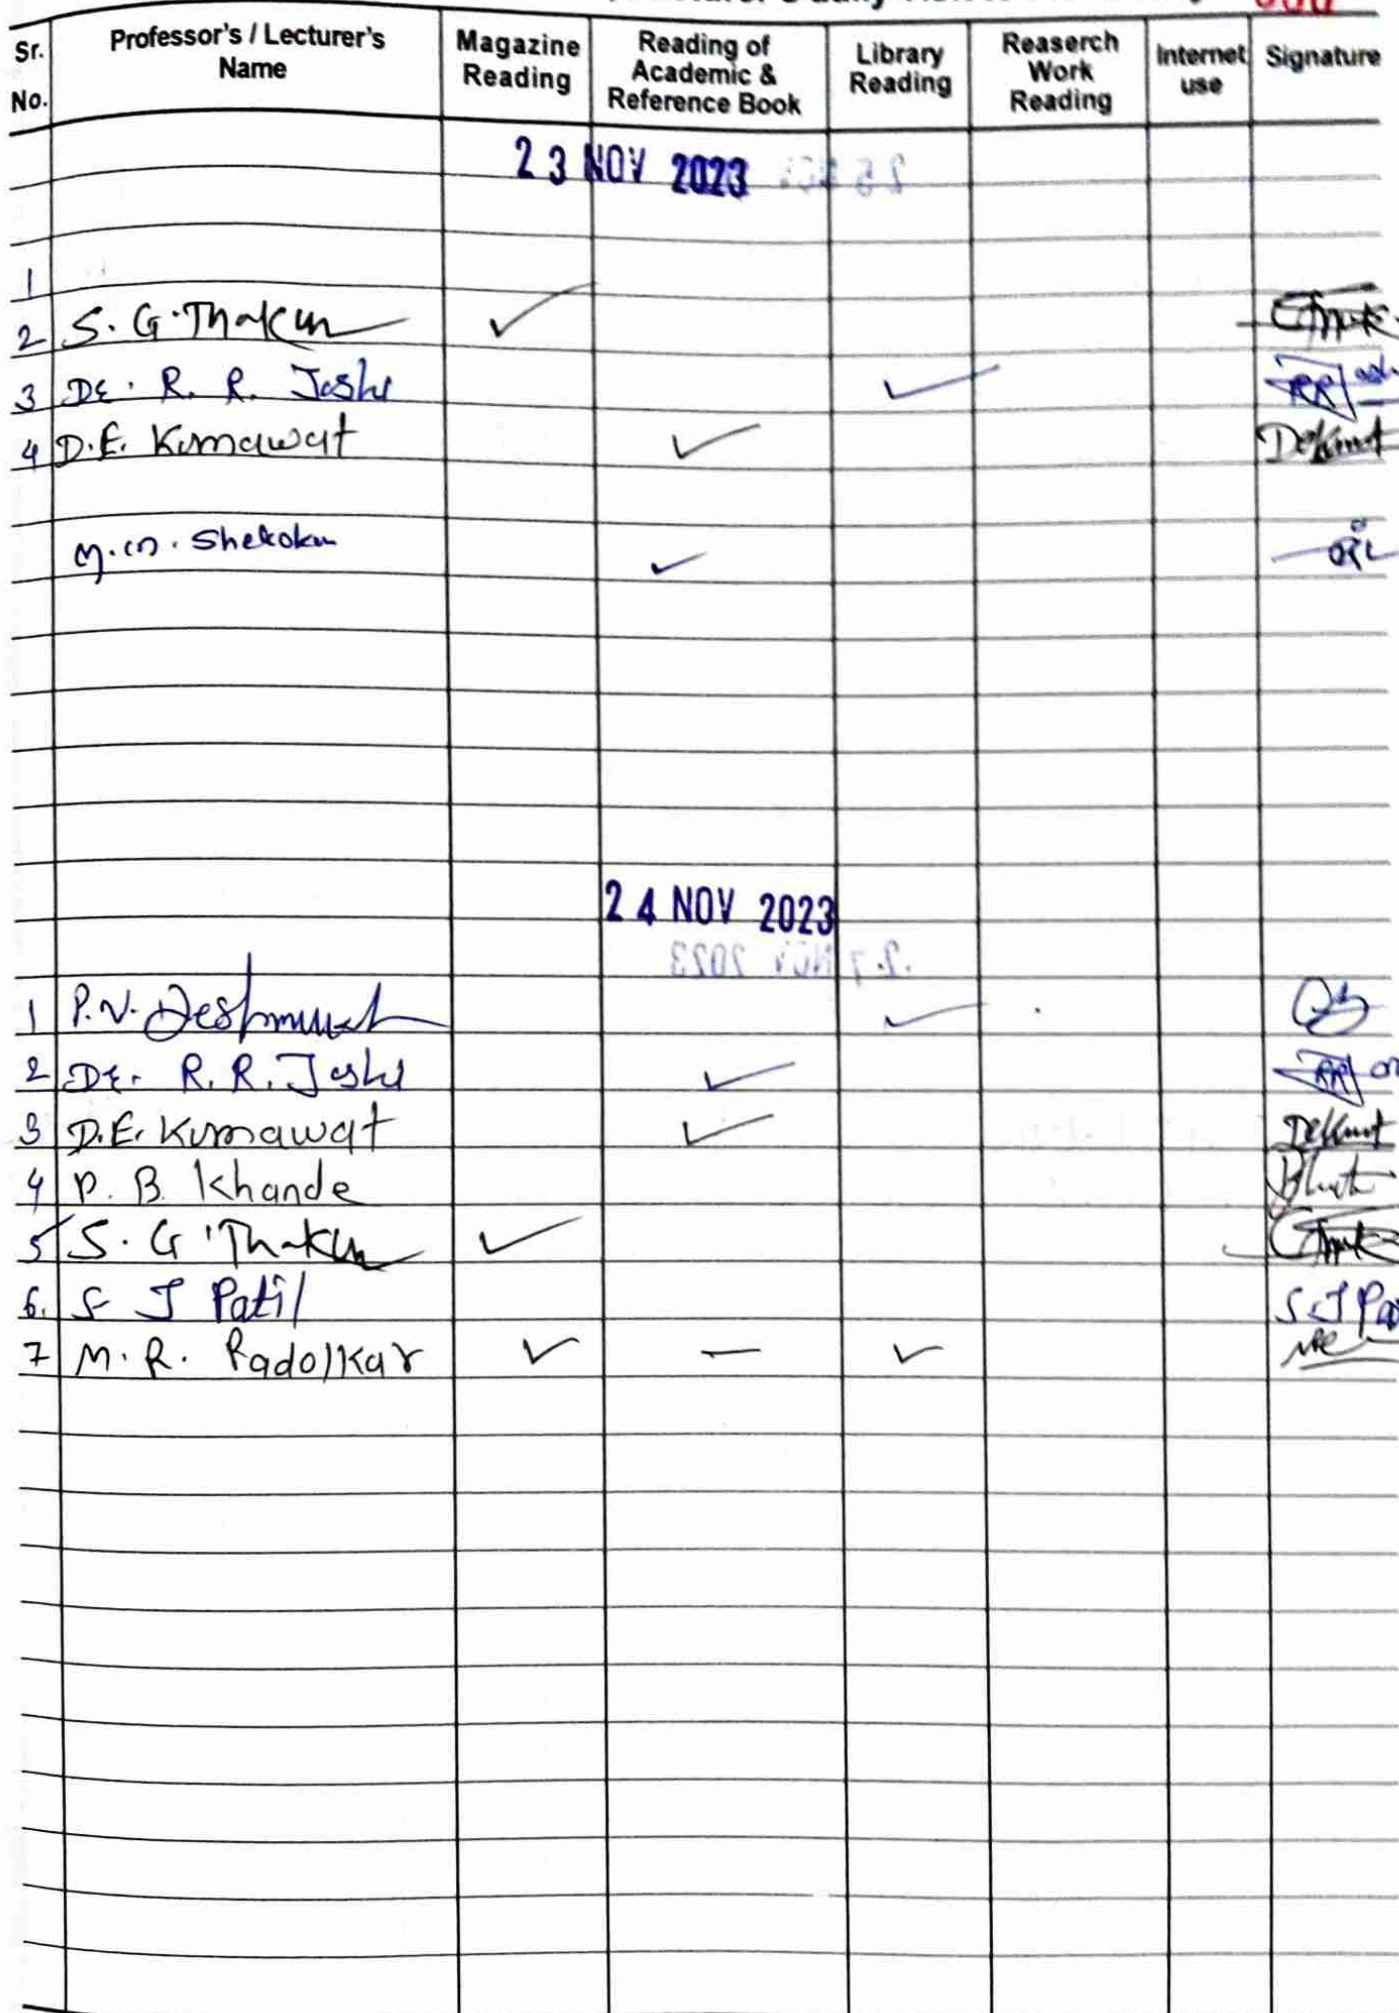 Sr. No. Professor's / Lecturer's Name Magazine Reading Reading of Academic & Reference Book Library Reading Reaserch Work Reading Internet use Signature
23 NOV 2023
1
2 S. G. Thakur ✓
3 Dr. R. R. Joshi ✓
4 D.E. Kumawat ✓
M.M. Shekokar ✓
24 NOV 2023
1 P.V. Deshmukh ✓
2 Dr. R. R. Joshi ✓
3 D.E. Kumawat ✓
4 P. B. Khande
5 S. G. Thakur ✓
6. S J Patil S.J Pa
7 M. R. Padolkar ✓ — ✓